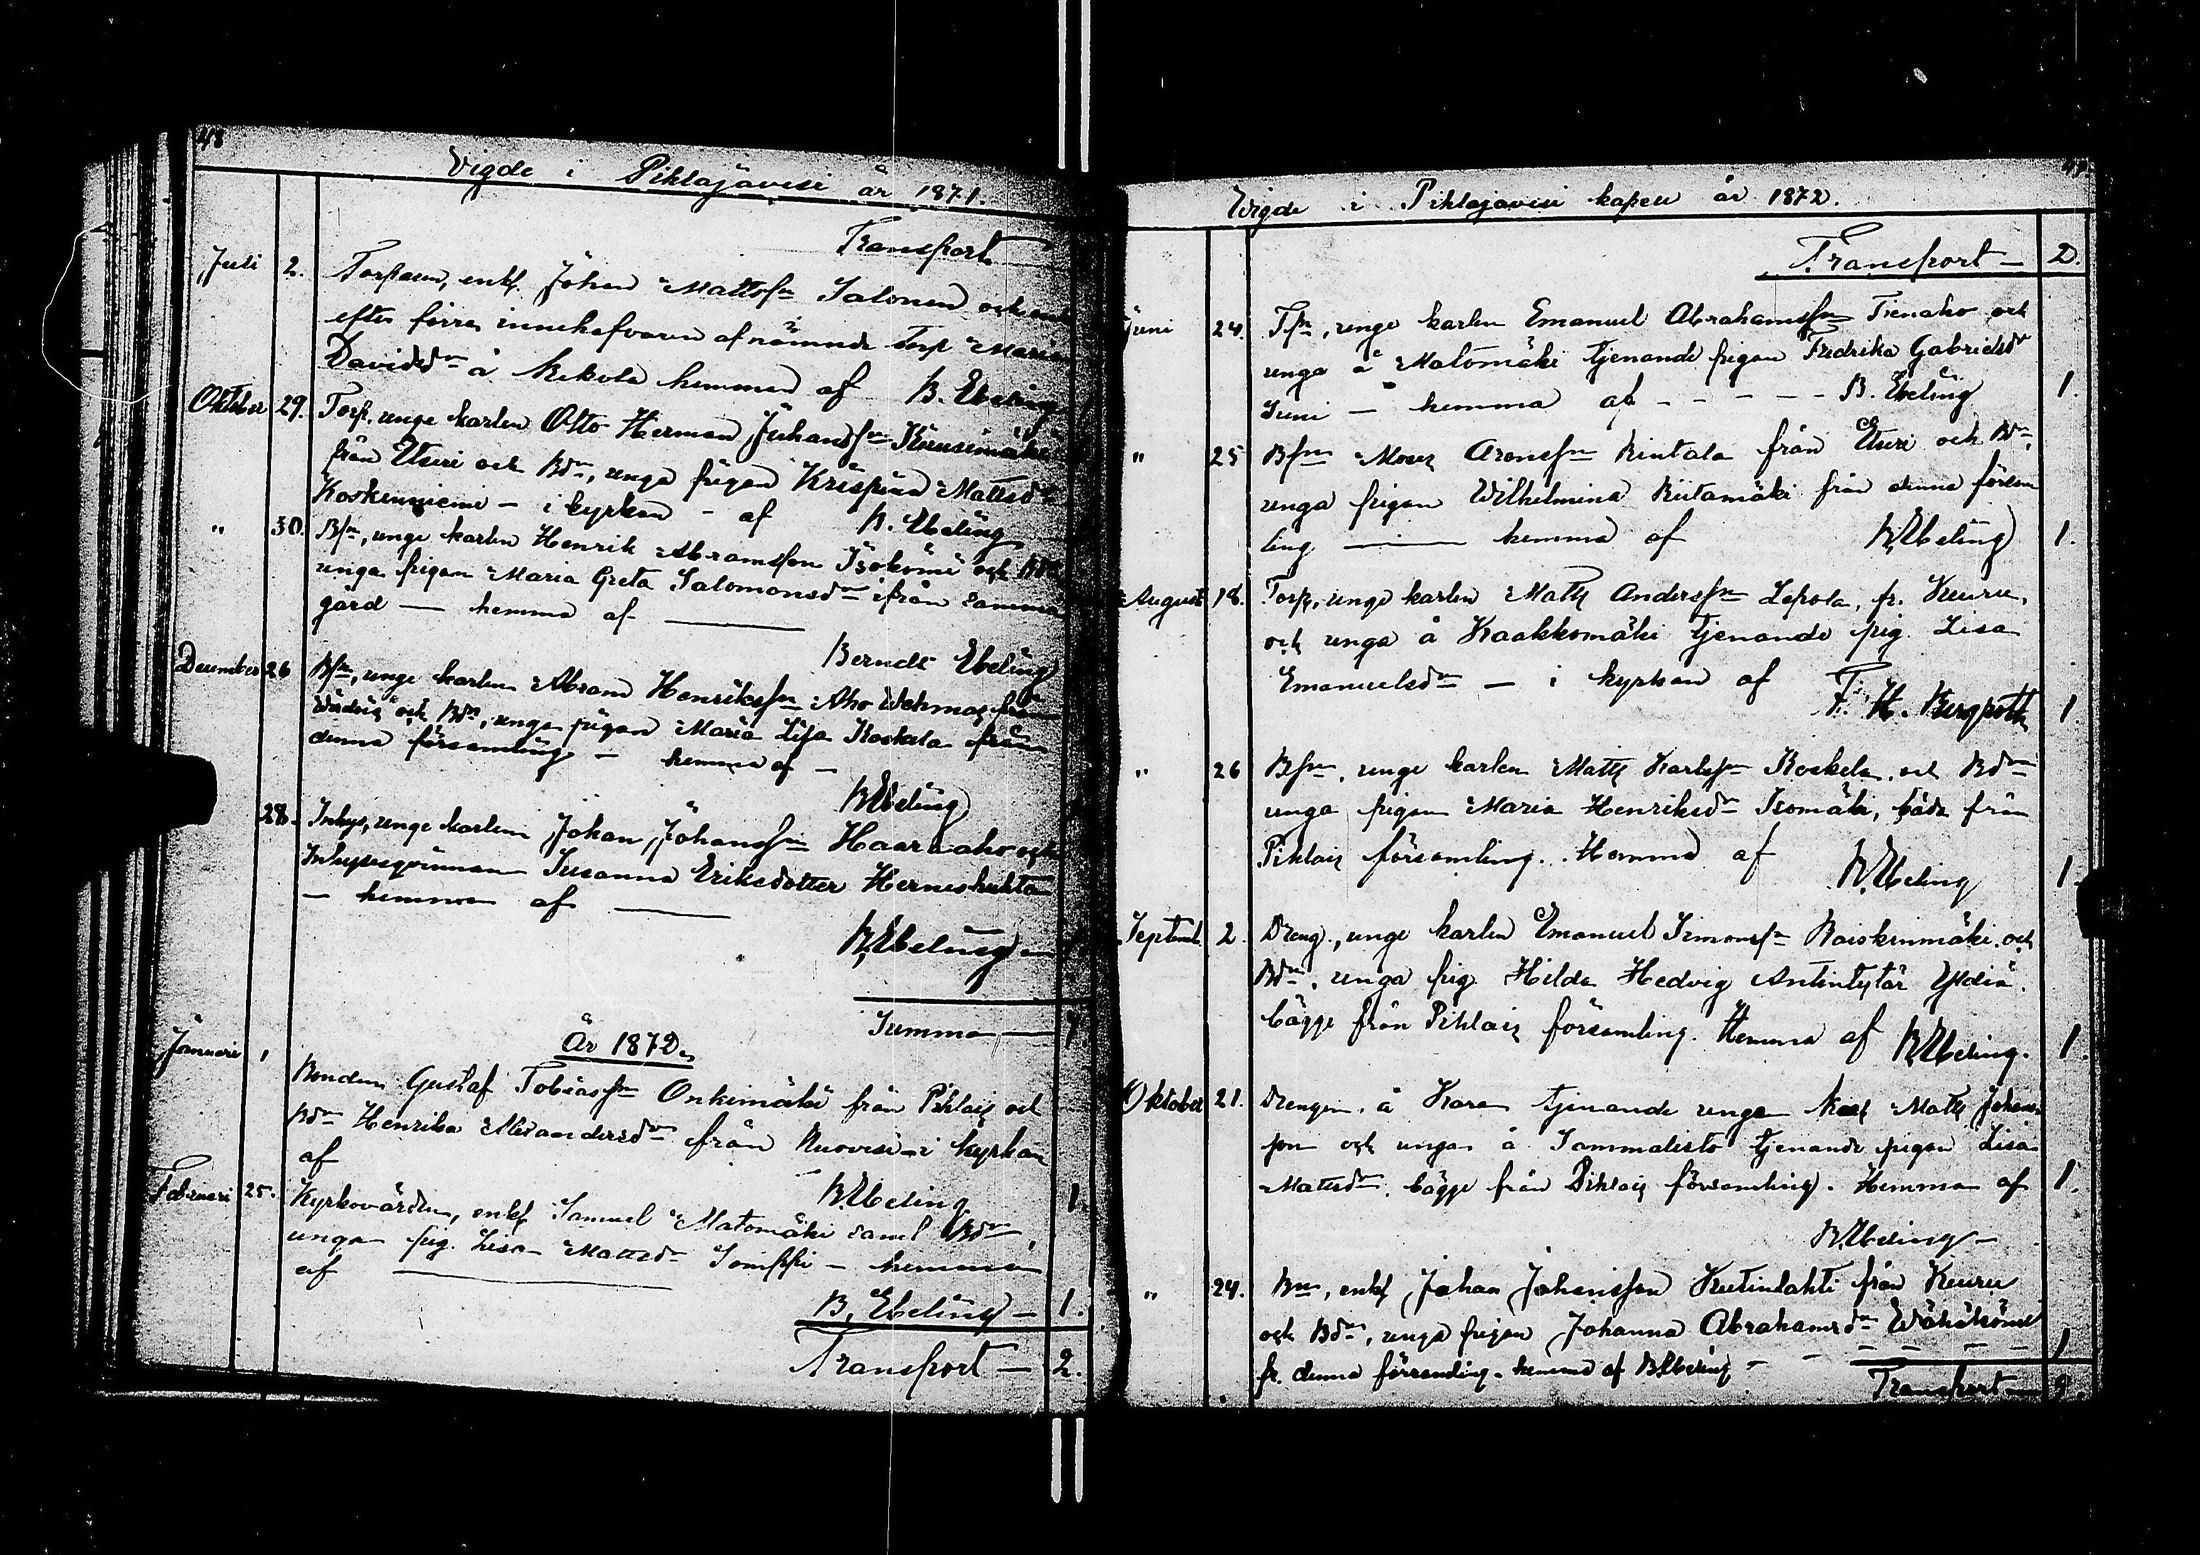 48
Vigde i Pihlajävesi år 1871.
Transport
Juli 2. Torparen, enkl. Johan Mattsson Salonen och enk
efter förra innehafvaren af nämnde Torp Maria
Davidsdr å Kekola hemma af B. Ebeling
Oktober 29. Torp. unge karlen Otto Herman Juhansson
från Etseri och Bdr, unga pigan Krispina Mattsdr
Koskenniemi – i kyrkan – af B. Ebeling
" 30. Bsn, unge karlen Henrik Abramsson Isokömi och Bdr
unga pigan Maria Greta Salomonsdr ifrån samma
gård — hemma af ———
Berndt Ebeling
December 26 Bsn, unge karlen Abram Henriksson Aho från
och Bdr, unga pigan Maria Lisa Koskela från
denna församling – hemma af –
B. Ebeling
28. Inhys, unge karlen Johan Johansson Haaraaho och
Inhysesqvinnan Susanna Eriksdotter Herneshuhta
— hemma af ———
B. Ebeling
Summa —
År 1872.
Januari 1
Bonden Gustaf Tobiasson Onkimäki från Pihlajz och
Bdr Henrika Alexandersdr från Ruovesi – i kyrkan
af B. Ebeling 1.
Februari 25. Kyrkovärden, enkl Samuel Matomäki samt Bdr,
unga pig. Lisa Mattsdr Somppi – hemma
af ———
B. Ebeling — 1.
Transport — 2.
Vigde i Pihlajavesi kapell år 1872.
Transport — 2.
Juni 24. Tsn, unge karlen Emanuel Abrahamsson Tienaho och
unga å Matomäki tjenande pigan Fredrika Gabrielsdr
Juni – hemma af - - - - - B. Ebeling 1.
" 25 Bsn Mosez Aronsson Rintala från Etseri och Bdr,
unga pigan Wilhelmina Riitamäki från denna försam
ling ——— hemma af B. Ebeling 1.
August 18. Torp, unge karlen Matts Andersson Lepola, fr. Keuru,
och unga å Kaakkomäki tjenande pig. Lisa
Emanuelsdr — i kyrkan af
F. H. Bergroth 1.
" 26 Bsn, unge karlen Matts Karlsson Koskela, och Bdr
unga pigan Maria Henriksdr Isomäki, båda från
Pihlajz församling. Hemma af B. Ebeling 1.
Septemb. 2. Dreng, unge karlen Emanuel Simonsson Raiskinmäki och
Bdr, unga pig Hilda Hedvig Antintytär
bägge från Pihlajz församling. Hemma af B. Ebeling. 1.
Oktober 21. Drengen å Kara tjenande unge karl Matts Johans
son och unga å Sammalisto tjenande pigan Lisa
Mattsdr, bägge från Pihlajz församling. Hemma af 1.
B. Ebeling –
" 24. Bn, enkl Johan Johansson Kutinlahti från Keuru
och Bdr, unga pigan Johanna Abrahamsdr
fr. denna församling – hemma af B. Ebeling – – – – 1
Transport —